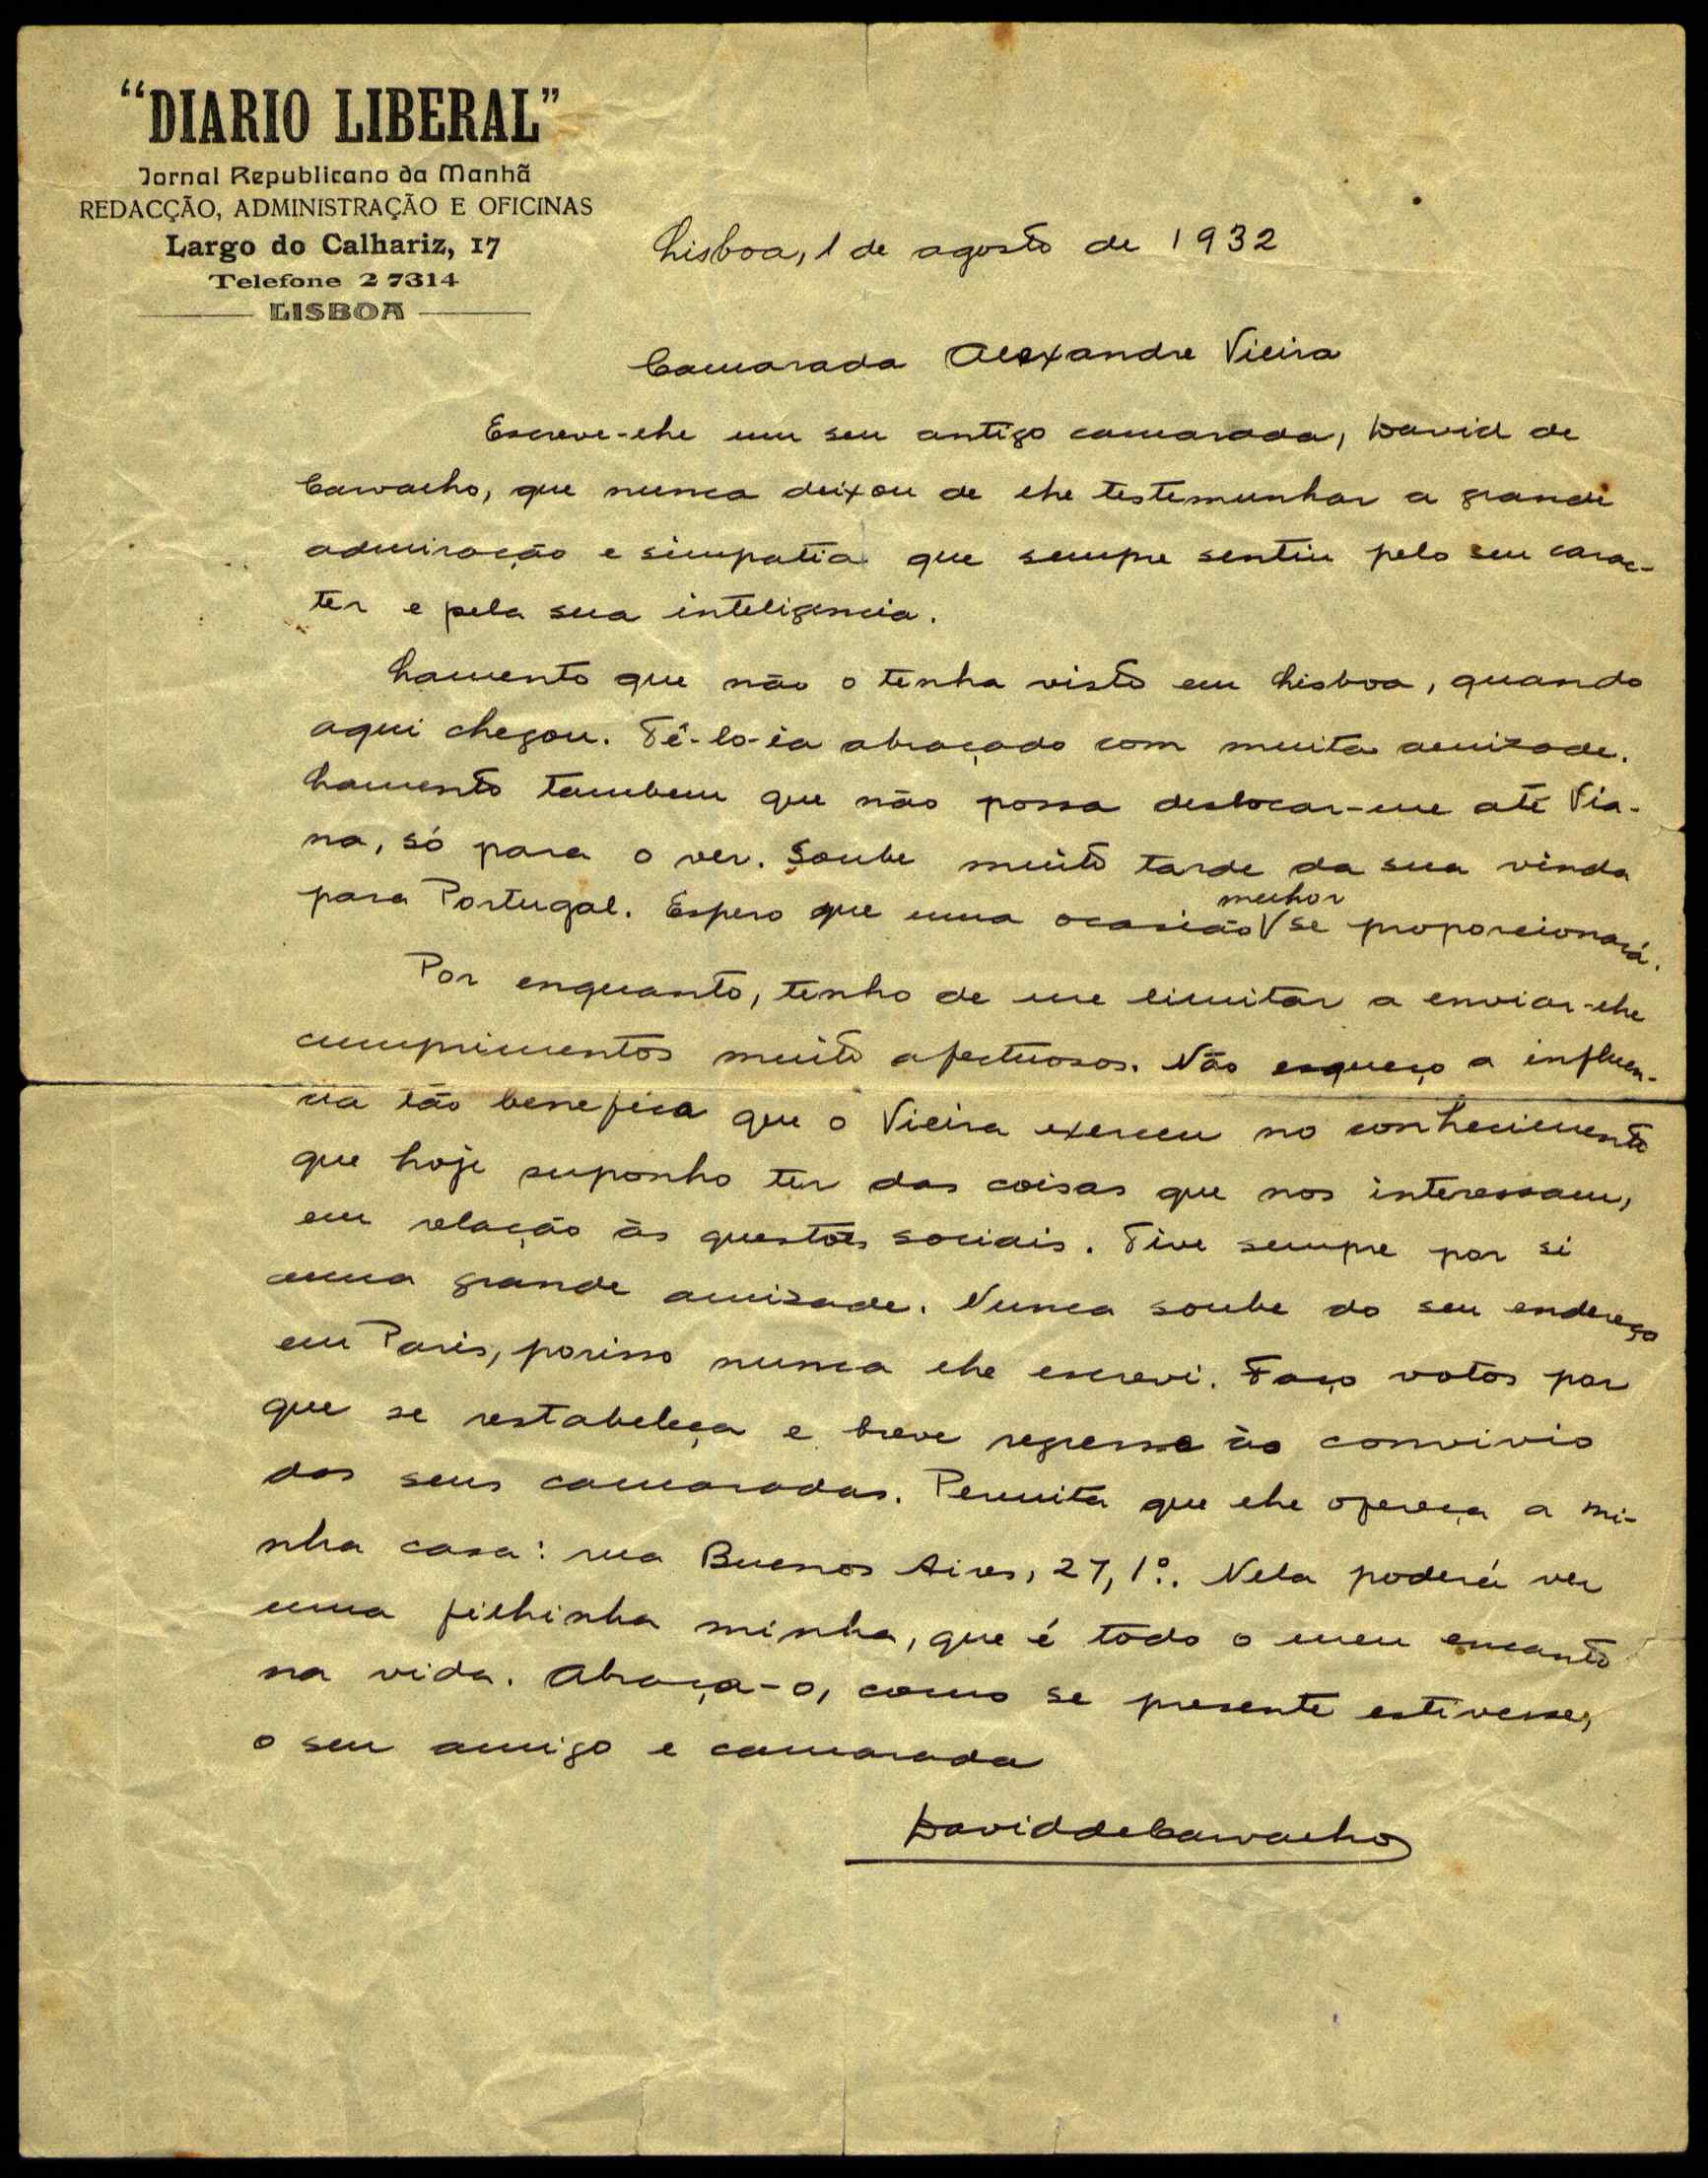 "DIARIO LIBERAL"
Jornal Republicano da Manhã
REDACÇÃO, ADMINISTRAÇÃO E OFICINAS
Largo do Calhariz, 17
Telefone 2 7314
LISBOA
Lisboa, 1 de agosto de 1932
Camarada Alexandre Vieira
Escreve-lhe um seu antigo camarada, David de
Carvalho, que nunca deixou de lhe testemunhar a grande
admiração e simpatia que sempre sentiu pelo seu carac-
ter e pela sua inteligencia.
Lamento que não o tenha visto em Lisboa, quando
aqui chegou. Tê-lo-ia abraçado com muita amizade.
Lamento tambem que não possa deslocar-me até Via-
na, só para o ver. Soube muito tarde da sua vinda
melhor
para Portugal. Espero que uma ocasião V se proporcionará.
Por enquanto, tenho de me limitar a enviar-lhe
cumprimentos muito afectuosos. Não esqueço a influen-
cia tão benefica que o Vieira exerceu no conhecimento
que hoje suponho ter das coisas que nos interessam,
em relação às questões sociais. Tive sempre por si
uma grande amizade. Nunca soube do seu endereço
em Paris, porisso nunca lhe escrevi. Faço votos por
que se restabeleça e breve regresse ao convivio
dos seus camaradas. Permita que lhe ofereça a mi-
nha casa: rua Buenos Aires, 27, 1º. Nela poderá ver
uma filhinha minha, que é todo o meu encanto
na vida. Abraça-o, como se presente estivesse,
o seu amigo e camarada
David de Carvalho